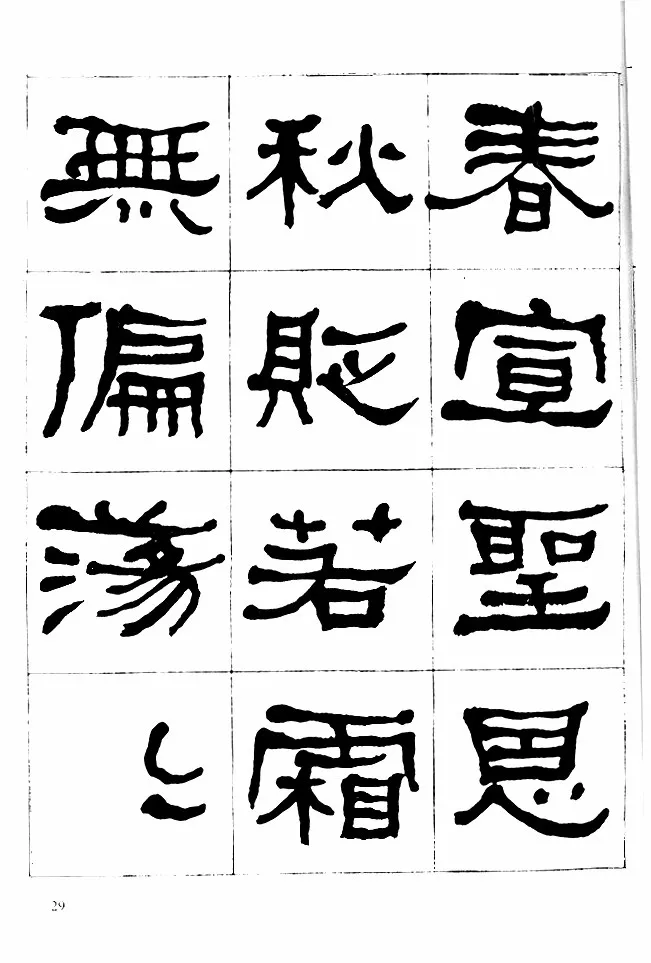 春宣聖恩
秋貶若霜
無偏蕩〻
29